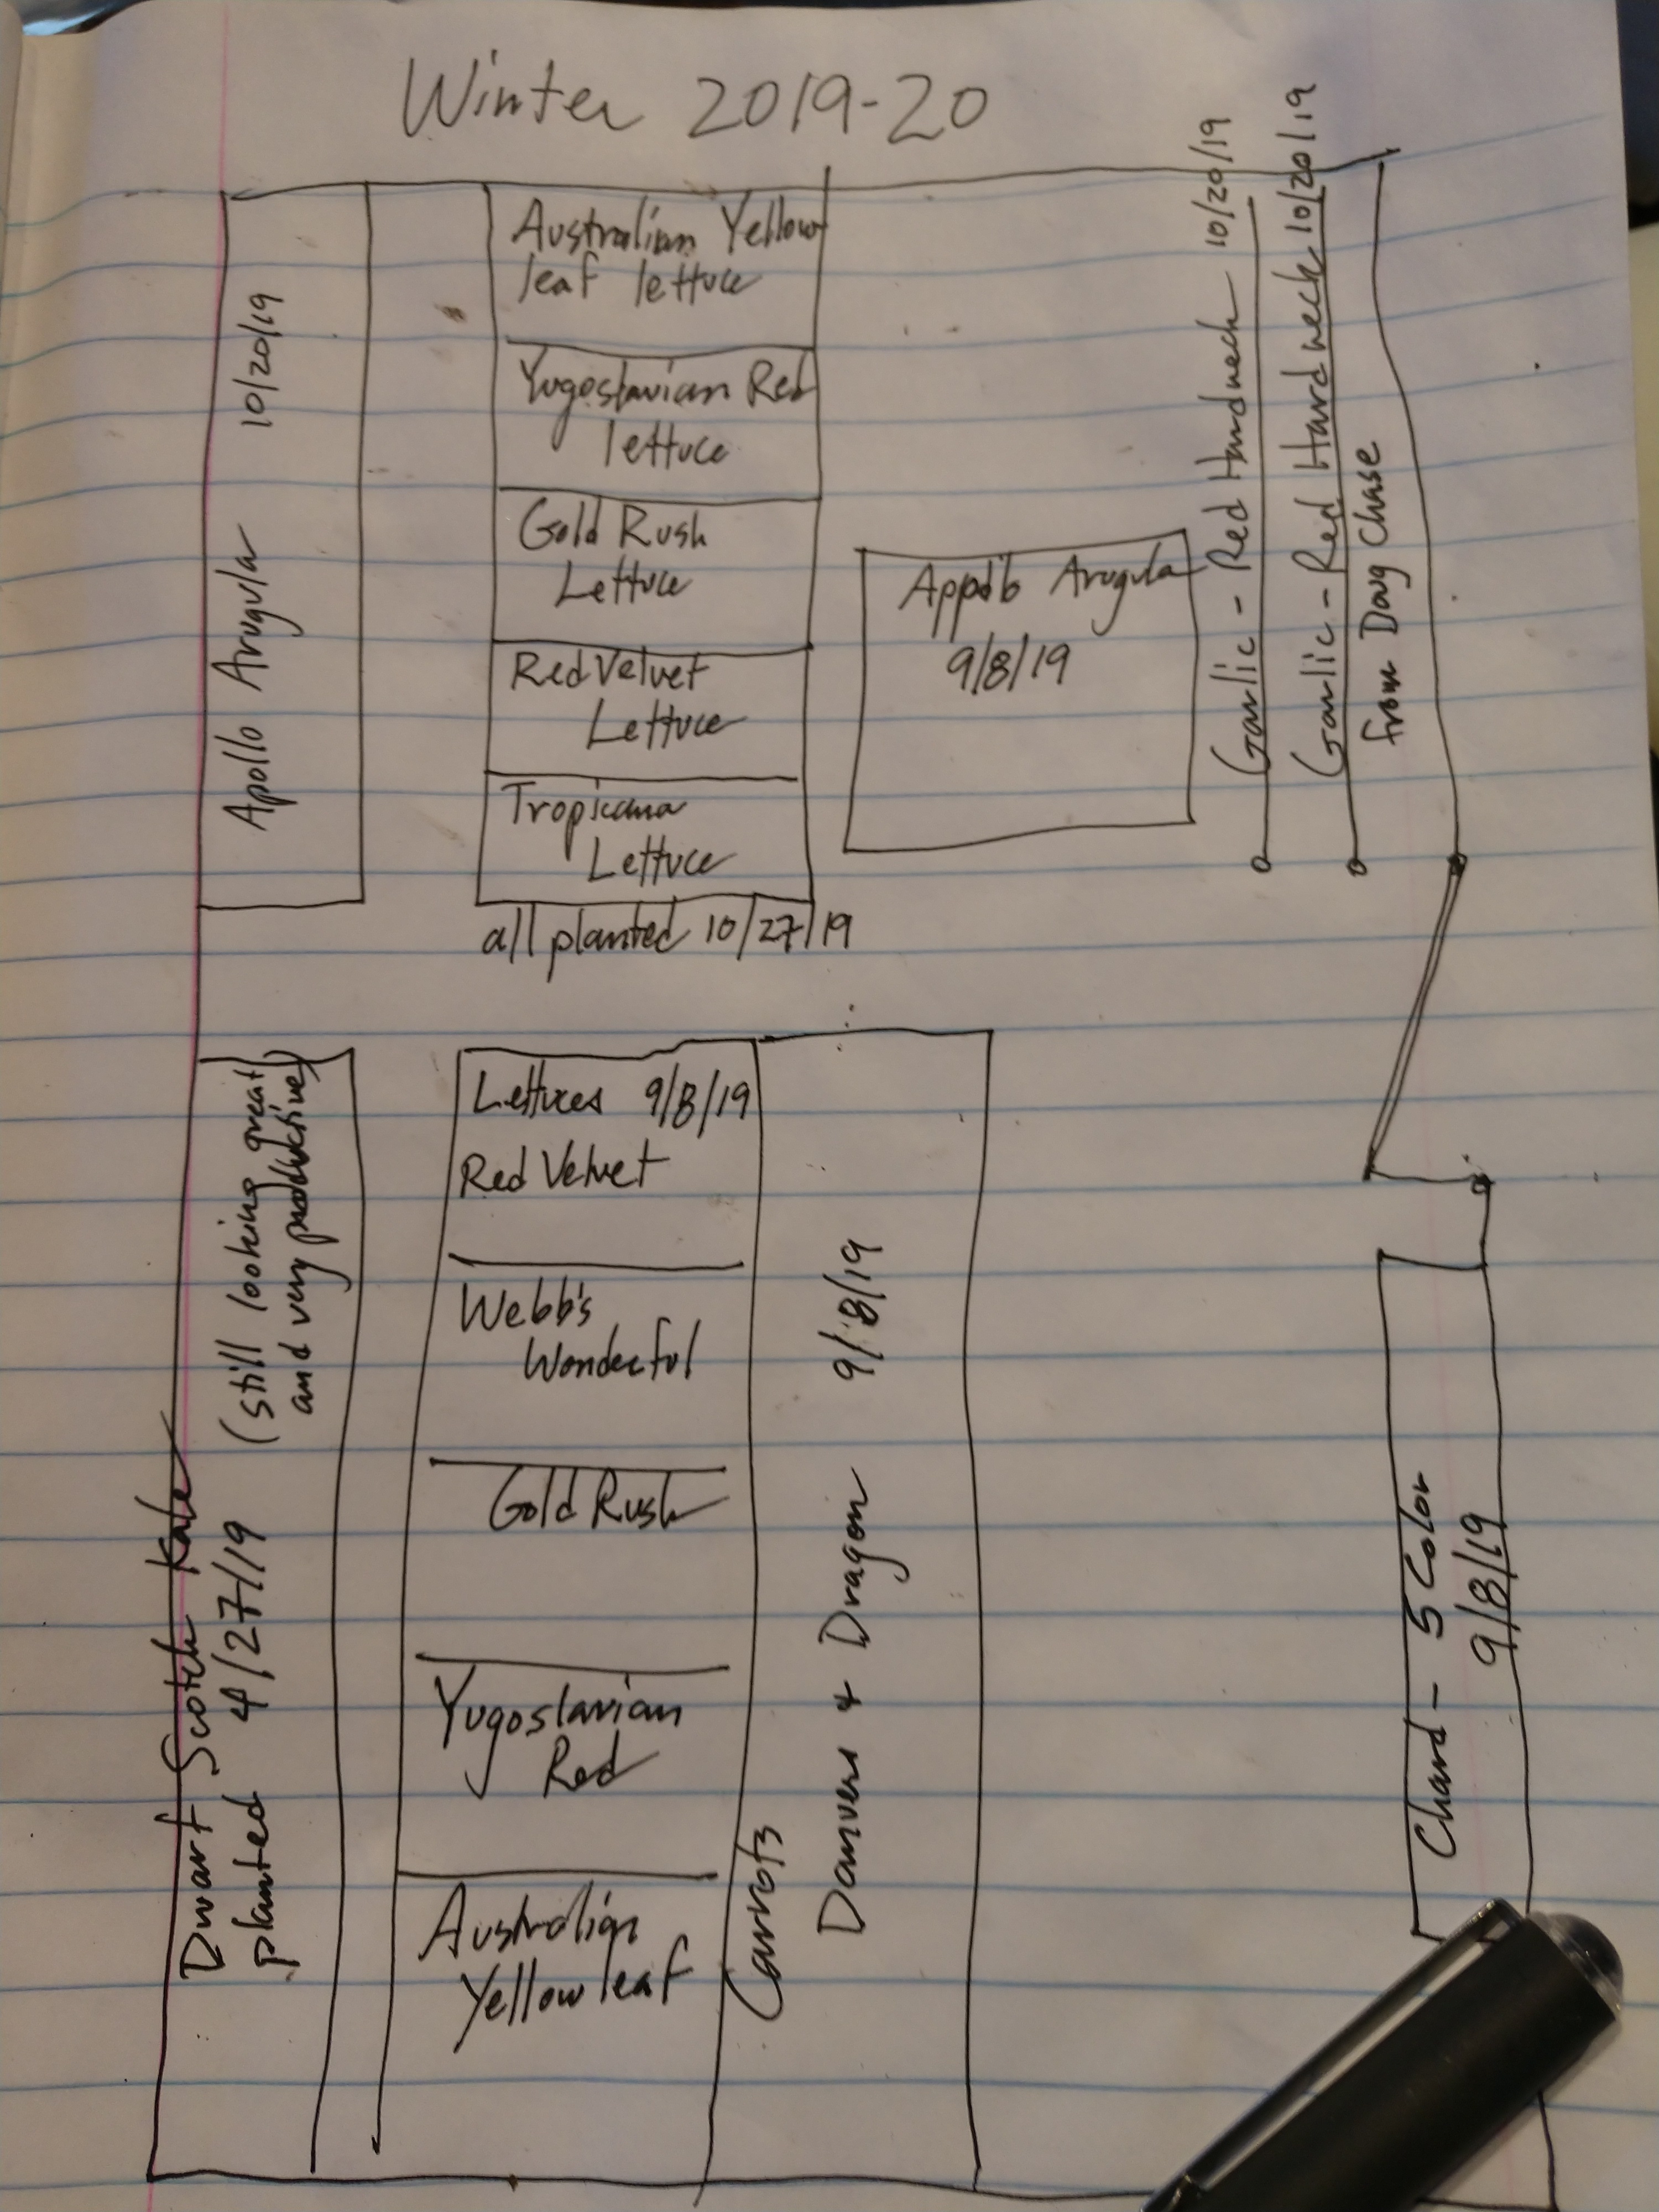 Winter 2019-20
Apollo Arugula 10/20/19
Australian Yellow
leaf lettuce
Yugoslavian Red
lettuce
Gold Rush
Lettuce
Red Velvet
Lettuce
Tropicana
Lettuce
all planted 10/27/19
Arugula
9/8/19
Garlic - Red Hardneck 10/20/19
Garlic - Red Hardneck 10/20/19
from Doug Chase
Dwarf Scotch Kale
planted 4/27/19 (still looking great
and very productive)
Lettuces 9/8/19
Red Velvet
Webb's
Wonderful
Gold Rush
Yugoslavian
Red
Australian
Yellow leaf
Carrots
Danvers & Dragon 9/8/19
Chard - 5 Color
9/8/19